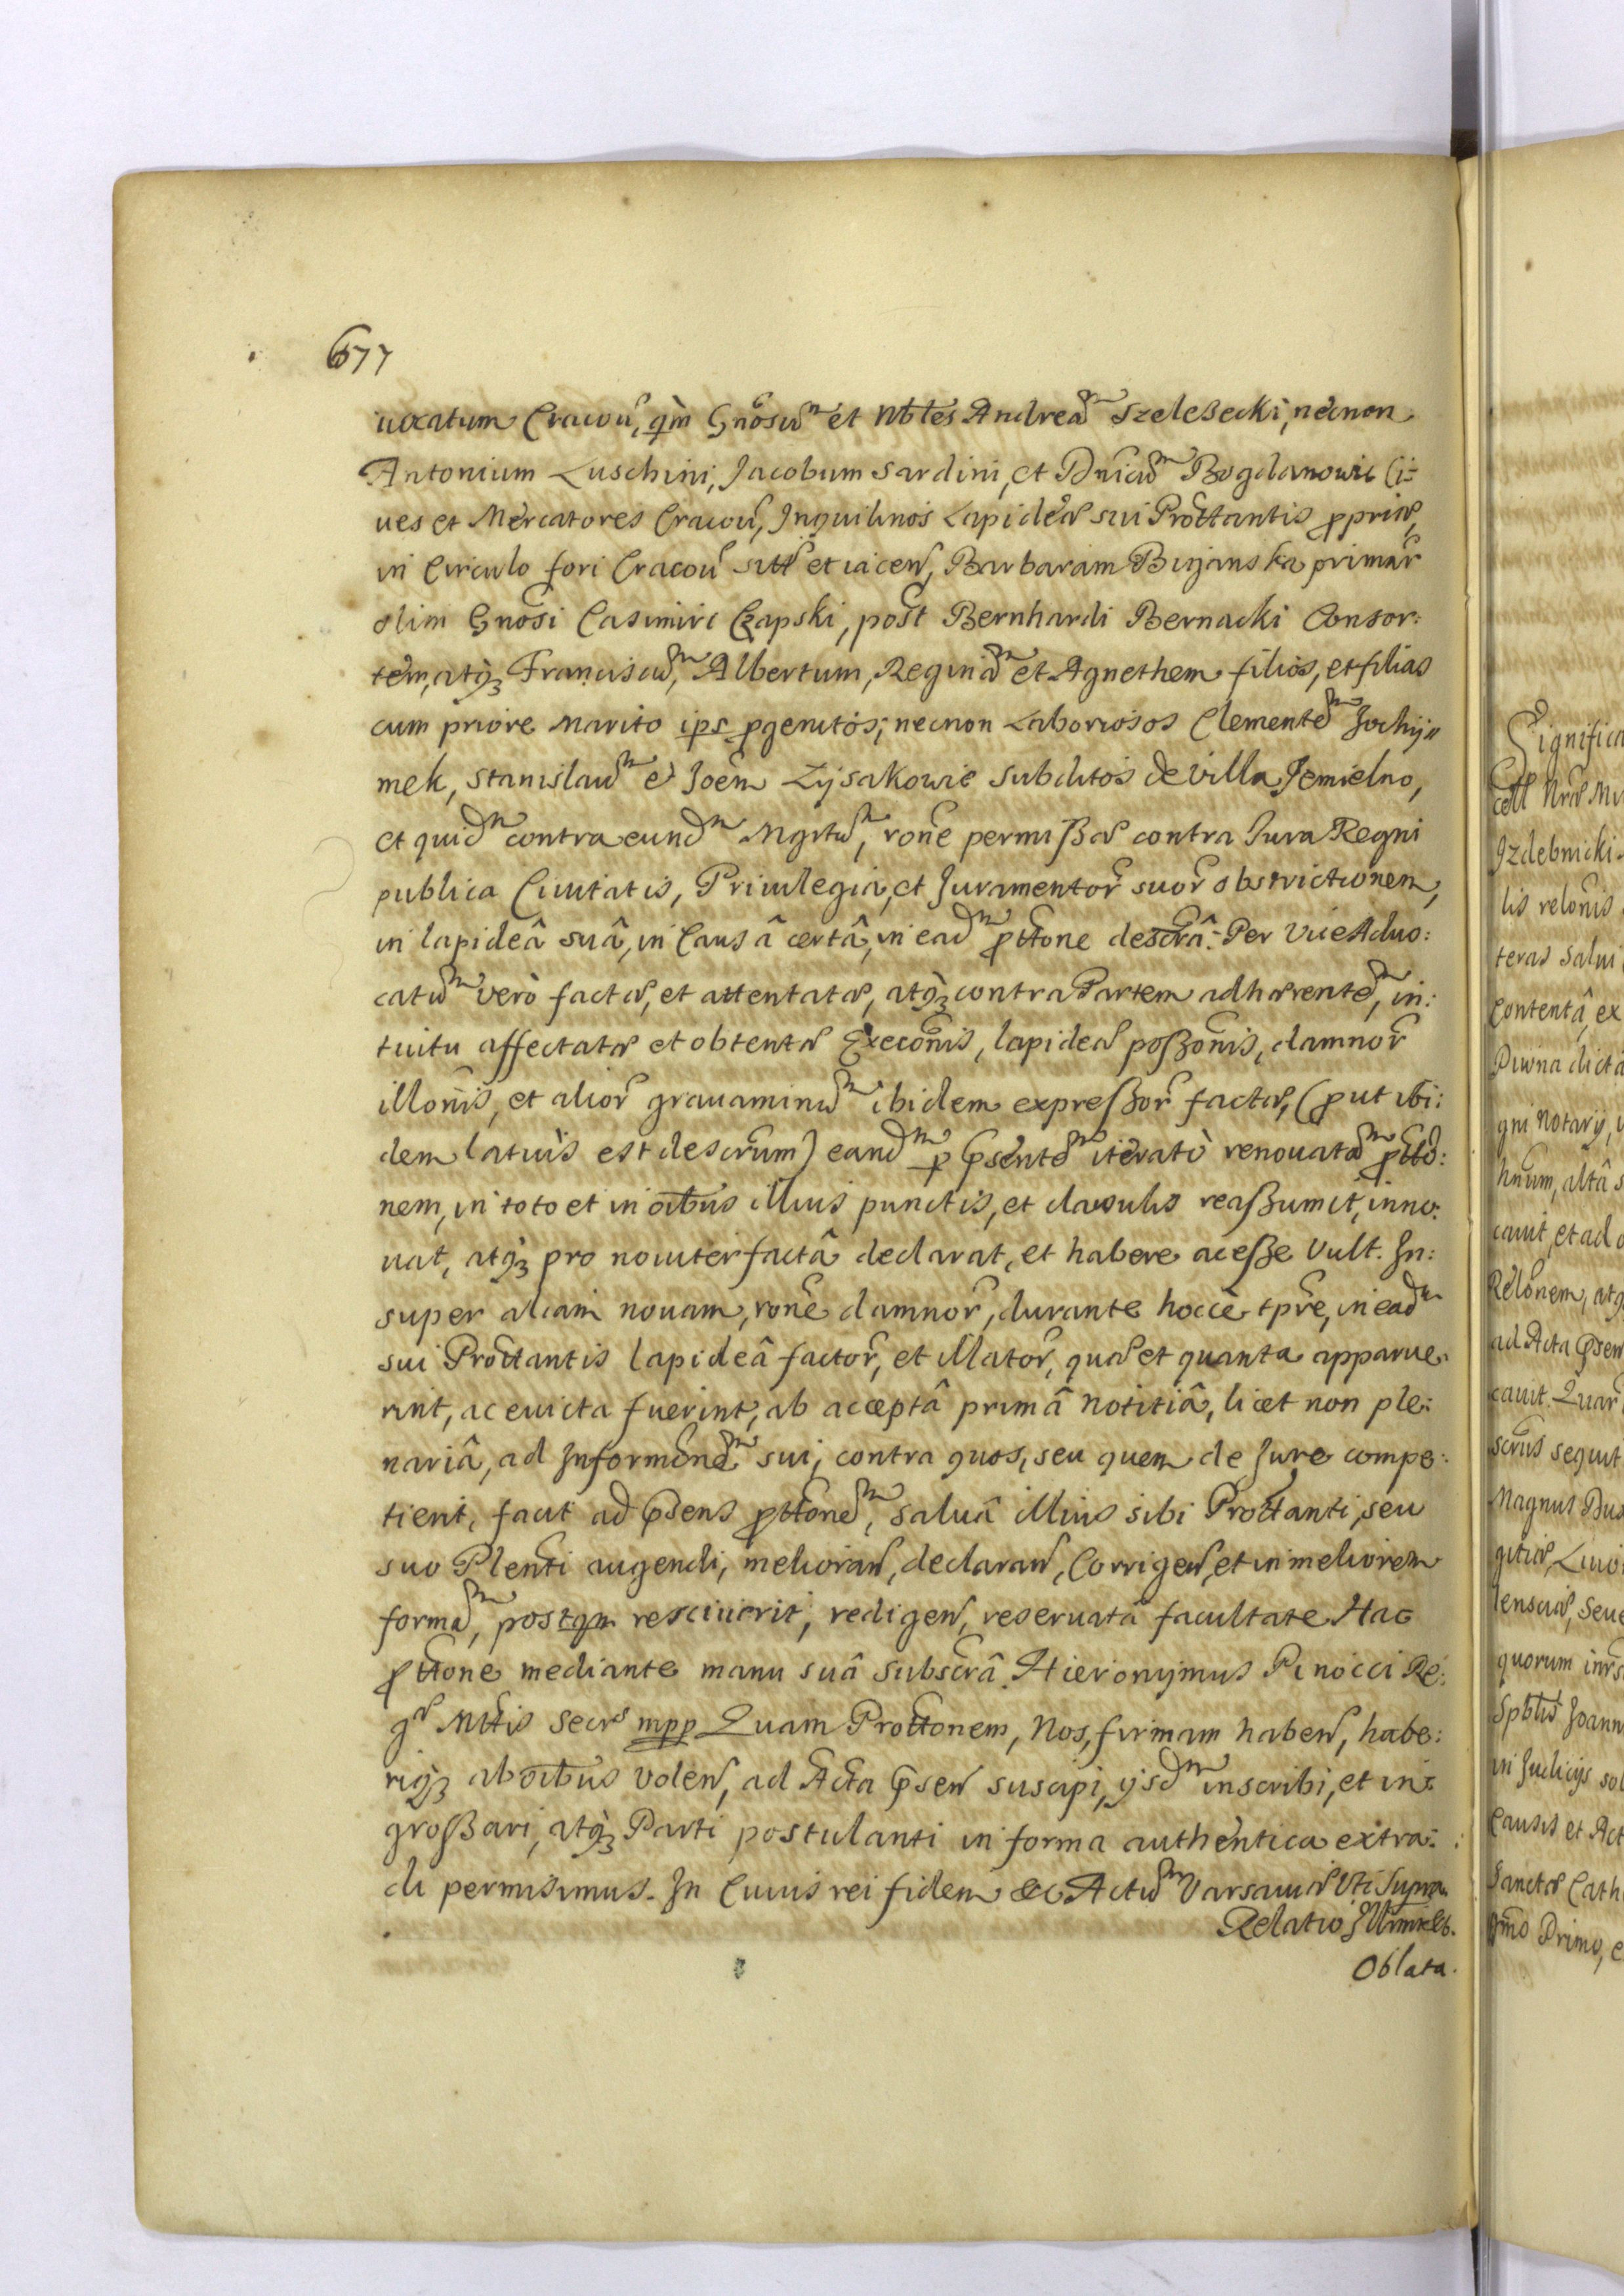 677
uocatum Cracou, qm Gnosum et Nbtes Andream Szeleßecki, necnon
Antonium Luschini, Jacobum Sardini, et Dnicum Bogdanowic Ci:
ues et Mercatores Cracou, Inquilinos Lapideæ sui Prottantis ppriæ,
in Circulo fori Cracou sitæ et iacen, Barbaram primær
olim Gnosi Casimiri Czapski, post Bernhardi Bernacki Consor:
tem, atq3 Franciscum, Albertum, Reginam et Agnethem filios, et filias
cum priore Marito ips pgenitos; necnon Laboriosos Clementem Jochij
mek, Stanislaum et Joem Zijsakowie Subditos de Villa Jemielno,
et quidem contra eundem Mgrtum, rone permißæ contra Jura Regni
publica Ciuitatis, Priuilegia, et Juramentor suor obstrictionem,
in lapideâ suâ, in Causâ certâ, in eadem pttone descrâ: Per Vice Aduo:
catum verò factæ, et attentatæ, atq3 contra Partem adhærentem, in:
tuitu affectatæ et obtentæ Execonis, lapideæ poßonis, damnor
illonis, et alior grauaminum ibidem expreßor factæ, (put ibi:
dem latiùs est descrum) eandem p psentem iteratò renouatam ptto:
nem, in toto et in oibus illius punctis, et clausulis reaßumit, inno:
uat, atq3 pro nouiter factâ declarat, et habere aceße Vult. In:
super aliam nouam, rone damnor, durante hocce tpre, in eadem
sui Prottantis lapideâ factor, et illator, quæ et quanta apparue
rint, ac euicta fuerint, ab acceptâ primâ notitiâ, licet non ple:
nariâ, ad Informonem sui, contra quos, seu quem de Jure compe:
tierit, facit ad psens pttonem, saluâ illius sibi Prottanti, seu
suo Plenti augendi, melioran, declaran, Corrigen, et in meliorem
formam, postqm resciuerit, redigen, reseruatâ facultate Hac
pttone mediante manu suâ Subscrâ. Hieronijmus Pinocci Re:
gæ Mttis Secrs mpp Quam Prottonem, Nos, firmam haben, habe:
riq3 ab oibus volen, ad Acta psen suscipi, ijsdem inscribi, et in:
großari, atq3 Parti postulanti in forma authentica extra:
di permisimus. In Cuius rei fidem &c Actum Varsauiæ Vti Supra.
Relatio
Oblata.
Significa
Izdebnicki
lis relonis
teras salui
Contentâ, ex
Diuina dictâ
gni Notarij,
hnum, altâ
cauit, et ad
Relonem, atq
ad Acta psen
cauit. Quar
scrus sequit
Magnus Dux
quorum
Spblis Joann
in Judicijs
Causis et Act
Sanctæ Cath
Primo,